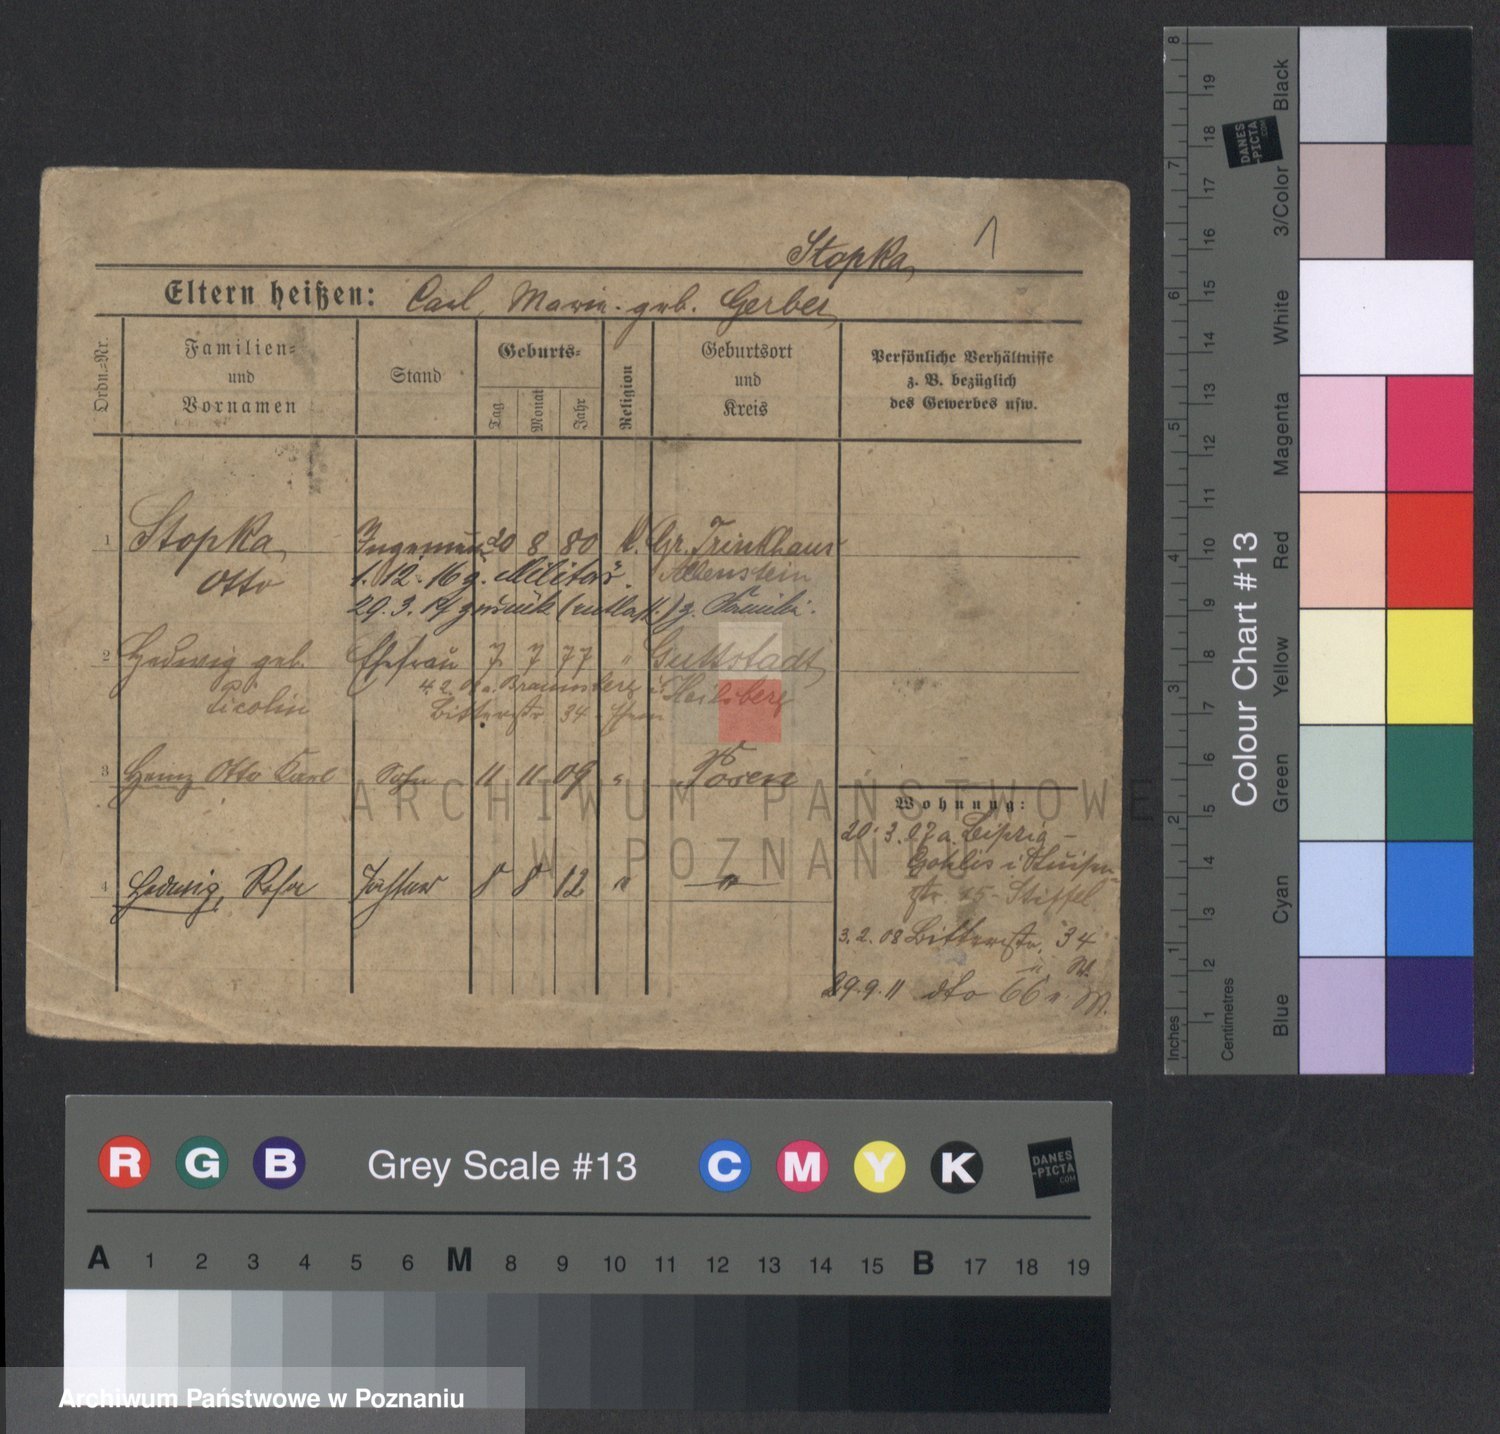 Stopka, 1
Eltern heißen: Carl, Marie geb. Gerber
Ordn.-Nr.
Familien- und Vornamen
Stand
Geburts-
Tag Monat Jahr
Religion
Geburtsort und Kreis
Persönliche Verhältnisse
z. B. bezüglich
des Gewerbes usw.
1 Stopka, Ingenieur 20 8 80 k. Gr. Trinkhaus
Otto 1.12.16 z. Militär. Allenstein
29.3.17 zurück (entlass.) z. Familie.
2 Hedwig geb. Ehefrau 7 7 77 " Guttstadt,
Picolin 4.2. a. Braunsberg Heilsberg
Bitterstr. 34
3 Heinz Otto Karl Sohn 11 11 09 " Posen
4 Hedwig, Rosa Tochter 8 8 12 " "
Wohnung:
20.3.07 a. Leipzig -
Gohlis
str. 15 - Stiffel
3.2.08 Bitterstr. 34
29.9.11 dto 66
ARCHIWUM PAŃSTWOWE
W POZNANIU
Inches
Centimetres
8 7 6 5 4 3 2 1
19 18 17 16 15 14 13 12 11 10 9 8 7 6 5 4 3 2 1
Colour Chart #13
Blue Cyan Green Yellow Red Magenta White 3/Color Black
DANES
-PICTA
.COM
R G B Grey Scale #13 C M Y K
DANES
-PICTA
.COM
A 1 2 3 4 5 6 M 8 9 10 11 12 13 14 15 B 17 18 19
Archiwum Państwowe w Poznaniu